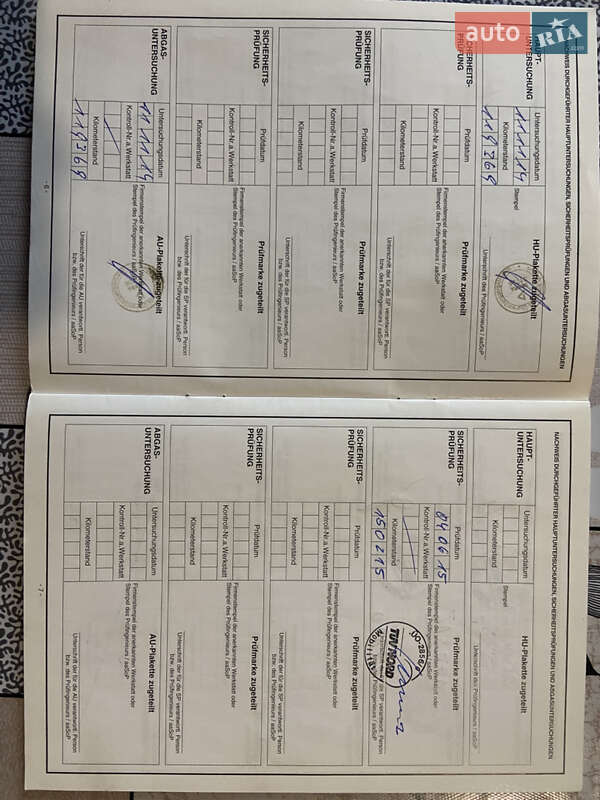 auto RIA .com
NACHWEIS DURCHGEFÜHRTER HAUPTUNTERSUCHUNGEN, SICHERHEITSPRÜFUNGEN UND ABGASUNTERSUCHUNGEN
HAUPT-
UNTERSUCHUNG
Untersuchungsdatum
11 11 14
Stempel
Kilometerstand
119 369
HU-Plakette zugeteilt
Unterschrift des Prüfingenieurs / aaSoP
SICHERHEITS-
PRÜFUNG
Prüfdatum
Kontroll-Nr.a.Werkstatt
Kilometerstand
Prüfmarke zugeteilt
Firmenstempel der anerkannten Werkstatt oder
Stempel des Prüfingenieurs / aaSoP
Unterschrift der für die SP verantwortl. Person
bzw. des Prüfingenieurs / aaSoP
SICHERHEITS-
PRÜFUNG
Prüfdatum
Kontroll-Nr.a.Werkstatt
Kilometerstand
Prüfmarke zugeteilt
Firmenstempel der anerkannten Werkstatt oder
Stempel des Prüfingenieurs / aaSoP
Unterschrift der für die SP verantwortl. Person
bzw. des Prüfingenieurs / aaSoP
SICHERHEITS-
PRÜFUNG
Prüfdatum
Kontroll-Nr.a.Werkstatt
Kilometerstand
Prüfmarke zugeteilt
Firmenstempel der anerkannten Werkstatt oder
Stempel des Prüfingenieurs / aaSoP
Unterschrift der für die SP verantwortl. Person
bzw. des Prüfingenieurs / aaSoP
ABGAS-
UNTERSUCHUNG
Untersuchungsdatum
11 11 14
Kontroll-Nr.a.Werkstatt
Kilometerstand
119 369
AU-Plakette zugeteilt
Firmenstempel der anerkannten Werkstatt oder
Stempel des Prüfingenieurs / aaSoP
Unterschrift der für die AU verantwortl. Person
bzw. des Prüfingenieurs / aaSoP
- 6 -
NACHWEIS DURCHGEFÜHRTER HAUPTUNTERSUCHUNGEN, SICHERHEITSPRÜFUNGEN UND ABGASUNTERSUCHUNGEN
HAUPT-
UNTERSUCHUNG
Untersuchungsdatum
Stempel
Kilometerstand
HU-Plakette zugeteilt
Unterschrift des Prüfingenieurs / aaSoP
SICHERHEITS-
PRÜFUNG
Prüfdatum
04 06 15
Kontroll-Nr.a.Werkstatt
Kilometerstand
150 215
Prüfmarke zugeteilt
Firmenstempel der anerkannten Werkstatt oder
Stempel des Prüfingenieurs / aaSoP
TÜV NORD
SICHERHEITS-
PRÜFUNG
Prüfdatum
Kontroll-Nr.a.Werkstatt
Kilometerstand
Prüfmarke zugeteilt
Firmenstempel der anerkannten Werkstatt oder
Stempel des Prüfingenieurs / aaSoP
Unterschrift der für die SP verantwortl. Person
bzw. des Prüfingenieurs / aaSoP
SICHERHEITS-
PRÜFUNG
Prüfdatum
Kontroll-Nr.a.Werkstatt
Kilometerstand
Prüfmarke zugeteilt
Firmenstempel der anerkannten Werkstatt oder
Stempel des Prüfingenieurs / aaSoP
Unterschrift der für die SP verantwortl. Person
bzw. des Prüfingenieurs / aaSoP
ABGAS-
UNTERSUCHUNG
Untersuchungsdatum
Kontroll-Nr.a.Werkstatt
Kilometerstand
AU-Plakette zugeteilt
Firmenstempel der anerkannten Werkstatt oder
Stempel des Prüfingenieurs / aaSoP
Unterschrift der für die AU verantwortl. Person
bzw. des Prüfingenieurs / aaSoP
- 7 -